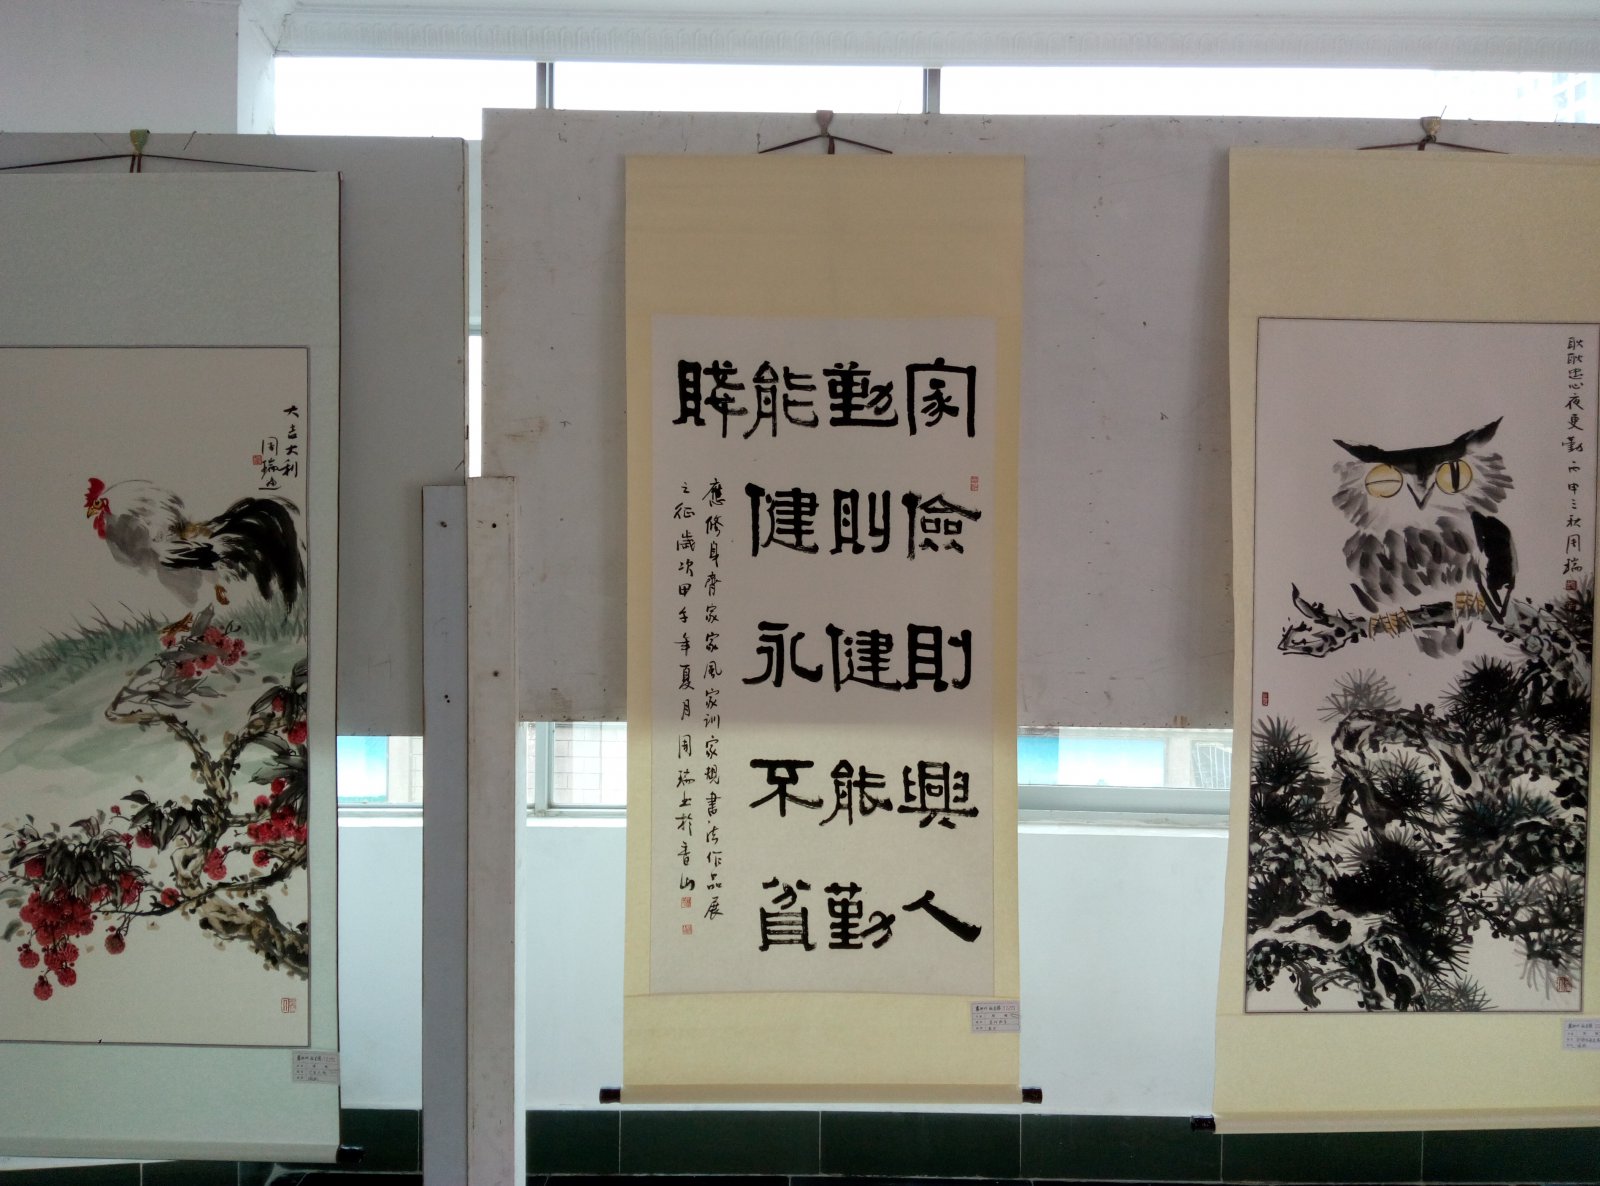 大吉大利
周瑞画
家儉則興人
勤則健能勤
能健永不貧
賤
應修身齊家家風家訓家規書法作品展
之征歲次甲午年夏月周瑞書於香山
耿耿忠心夜更勤丙申之秋周瑞